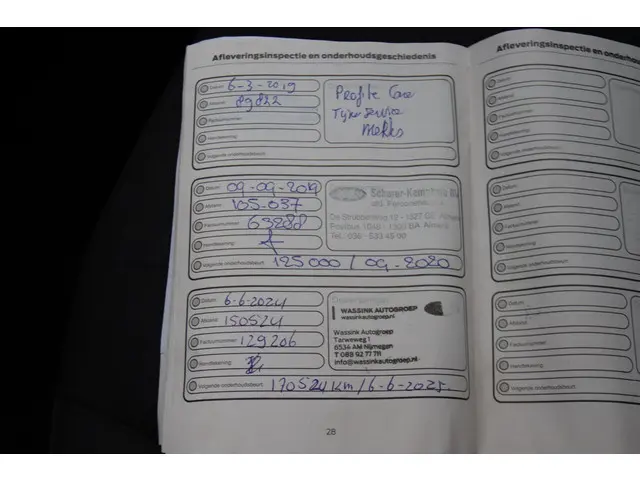 Afleveringsinspectie en onderhoudsgeschiedenis
Datum 6-3-2019
Afstand 89822
Factuurnummer
Handtekening
Volgende onderhoudsbeurt
Profile
Datum 09-09-2019
Afstand 105-037
Factuurnummer 63288
Handtekening
Volgende onderhoudsbeurt 125000 / 09-2020
De Strubbenweg 12 - 1327
Postbus 1300 BA Almere
Tel. 036 - 533 45 00
Datum 6-6-2024
Afstand 150524
Factuurnummer 129206
Handtekening
Volgende onderhoudsbeurt 170524 KM / 6-6-2025.
WASSINK AUTOGROEP
wassinkautogroep.nl
Wassink Autogroep
Tarweweg 1
6534 AM Nijmegen
T 088 92 77 711
info@wassinkautogroep.nl
28
Afleveringsinspectie en onderhou
Datum
Afstand
Factuurnummer
Handtekening
Volgende onderhoudsbeurt
Datum
Afstand
Factuurnummer
Handtekening
Volgende onderhoudsbeurt
Datum
Afstand
Factuurnummer
Handtekening
Volgende onderhoudsbeurt